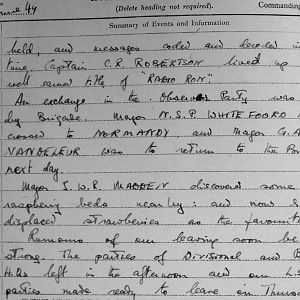 June 44
(Delete heading not required).
Commanding
Summary of Events and Information
held, and messages coded and decoded in
time. Captain C.R. ROBERTSON lived up
well earned title of "RADIO RON".
An exchange in the Observer Party was
by Brigade. Major N.S.P. WHITEFOORD
crossed to NORMANDY, and Major G.A.
VANDELEUR was to return to the
next day.
Major J.W.R. MADDEN discovered some
raspberry beds nearby: and now
displaced strawberries as the favourite
Rumours of our leaving soon
strong. The parties of Divisional and B
H.Qs left in the afternoon and our
parties made ready to leave on Thurs